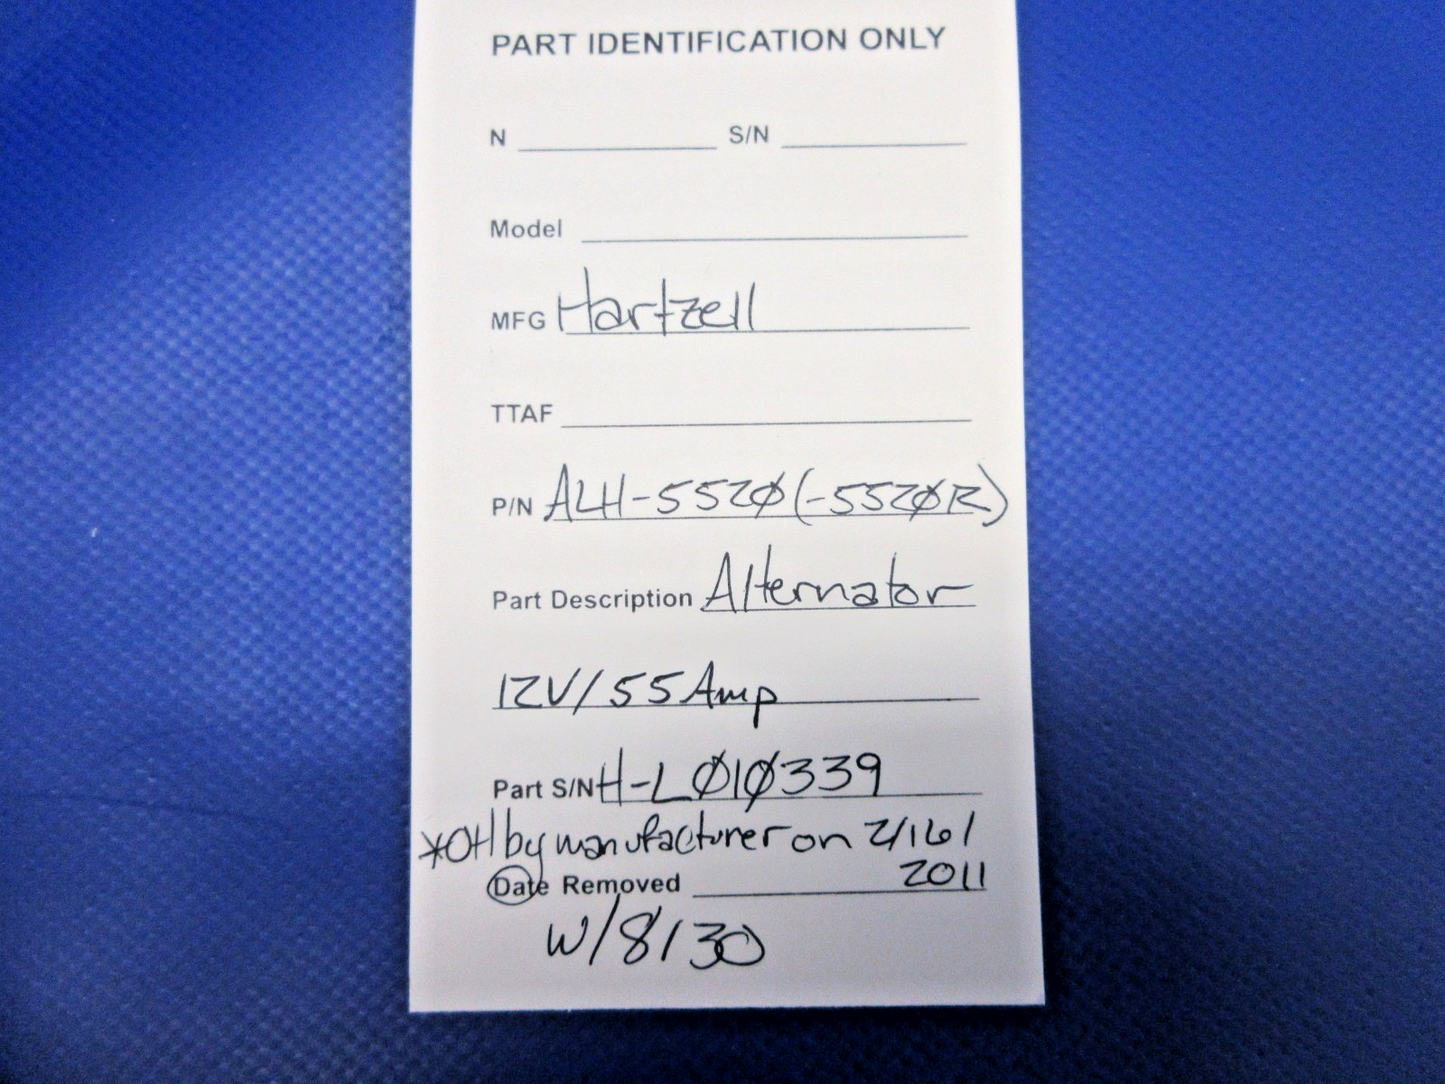 PART IDENTIFICATION ONLY
N ____________ S/N ____________
Model ____________
MFG Hartzell
TTAF ____________
P/N ALH-552Ø (-552ØR)
Part Description Alternator
12V/55 Amp
Part S/N H-LØ1Ø339
*OH by manufacturer on 2/16/
2011
Date Removed ____________
W/8130